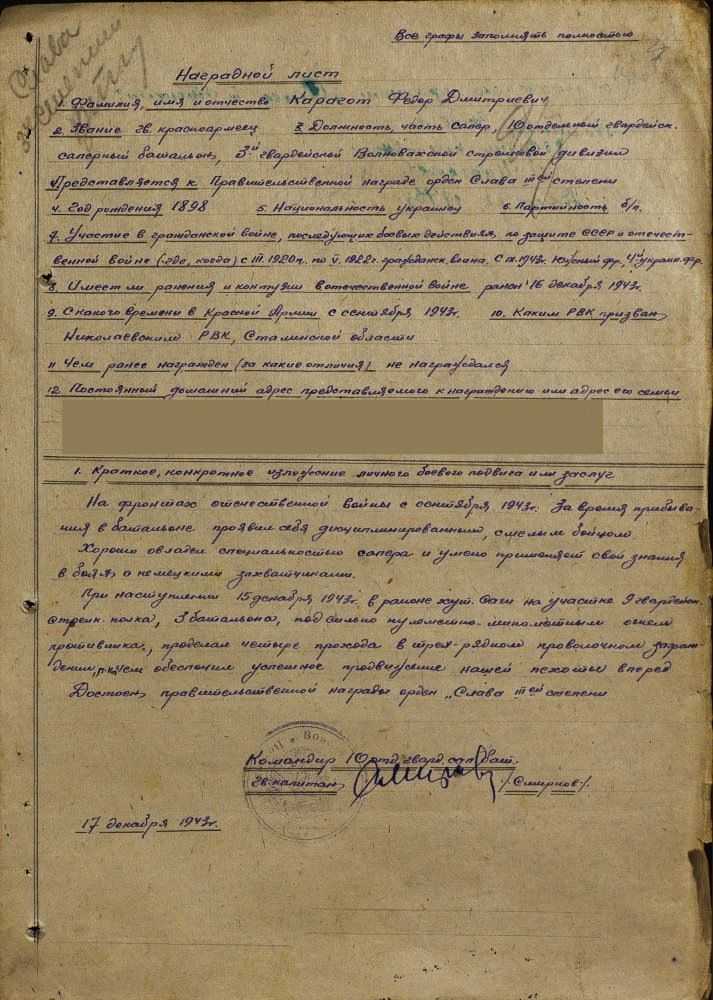 Слава
Все графы заполнять полностью
Наградной лист
1. Фамилия, имя и отчество Карагот Федор Дмитриевич
2. Звание гв. красноармеец 3. Должность, часть сапер, 10 отдельный гвардейск.
саперный батальон, 3й гвардейской Волновахской стрелковой дивизии
Представляется к Правительственной награде орден Слава IIIей степени
4. Год рождения 1898 5. Национальность украинец 6. Партийность б/п.
7. Участие в гражданской войне, последующих боевых действиях, по защите СССР и отечест-
венной войне (где, когда) с III.1920г. по V.1922г. гражданск. война. С IX.1943г. Южный фр., 4й украин. фр.
8. Имеет ли ранения и контузии в отечественной войне ранен 16 декабря 1943г.
9. С какого времени в Красной Армии с сентября 1943г. 10. Каким РВК призван
Николаевским РВК, Сталинской области
11 Чем ранее награжден (за какие отличия) не награждался
12. Постоянный домашний адрес представляемого к награждению или адрес его семьи
1. Краткое, конкретное изложение личного боевого подвига или заслуг
На фронтах отечественной войны с сентября 1943г. За время прибыва-
ния в батальоне проявил себя дисциплинированным, смелым бойцом.
Хорошо овладел специальностью сапера и умело применяет свои знания
в боях с немецкими захватчиками.
При наступлении 15 декабря 1943г. в районе хут. Саги на участке 9 гвардейск.
стрелк. полка, 3 батальона, под сильно пулеметно-минометным огнем
противника, проделал четыре прохода в трех-рядном проволочном заграж-
дении, чем обеспечил успешное продвижение нашей пехоты вперед
Достоен правительственной награды орден „Слава IIIей степени
Командир 10 отд. гвард. сап. бат.
гв. капитан /Смирнов/.
17 декабря 1943г.